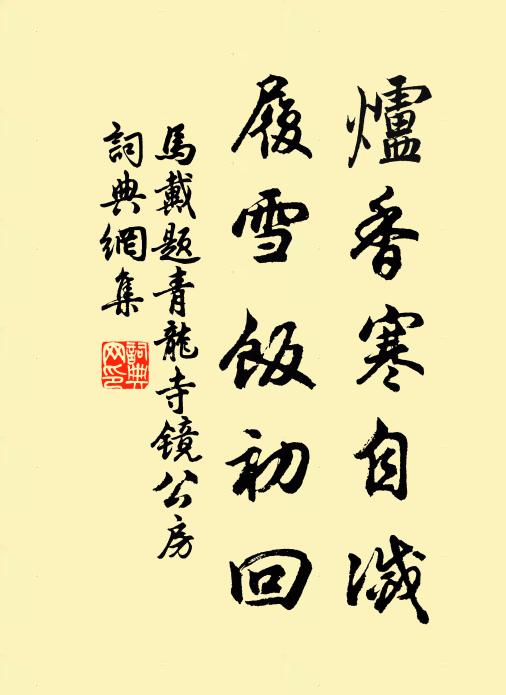 爐香寒自滅
履雪飯初回
馬戴題青龍寺镜公房
詞典網集
詞典網印